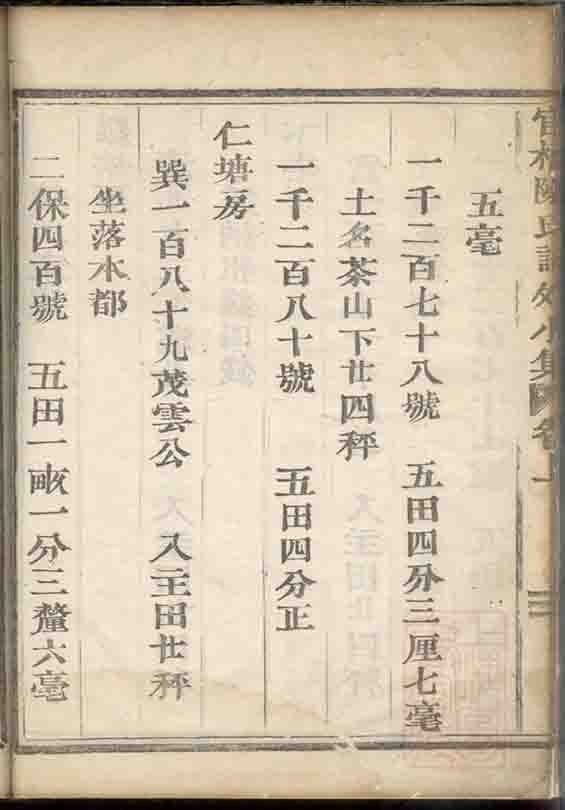 五毫
一千二百七十八號 五田四分三厘七毫
土名茶山下廿四秤
一千二百八十號 五田四分正
仁塘房
巽一百八十九茂雲公 入主田廿秤
坐落本都
二保四百號 五田一畝一分三釐六毫